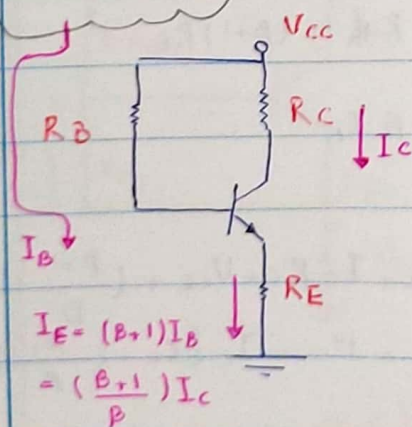 VCC
RB
RC
IC
IB
RE
IE = (β+1)IB
= (β+1/β)IC